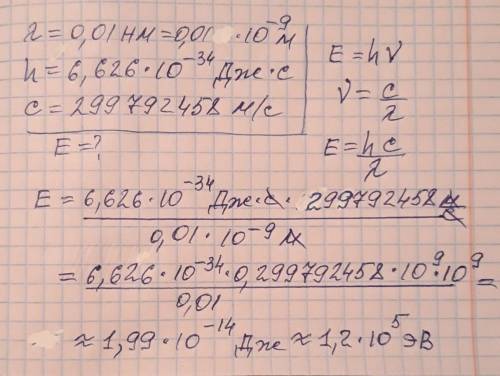 λ = 0,01 нм = 0,01 · 10⁻⁹ м
h = 6,626 · 10⁻³⁴ Дж · с
c = 299792458 м/с
E = ?
E = hν
ν = c/λ
E = hc/λ
E = 6,626 · 10⁻³⁴ Дж · с · 299792458 м/с / 0,01 · 10⁻⁹ м
= 6,626 · 10⁻³⁴ · 0,299792458 · 10⁹ · 10⁹ / 0,01 =
≈ 1,99 · 10⁻¹⁴ Дж ≈ 1,2 · 10⁵ эВ